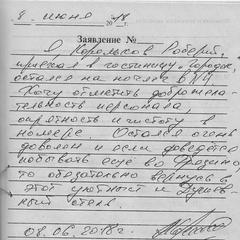 8 июня 2018 г.
Заявление №
Я Корольков Роберт,
приехал в гостиницу "Городок,
остался на ночлег в
Хочу отметить доброжела-
тельность персонала,
опрятность и чистоту в
номере. Остался очень
доволен и если доведётся
побывать ещё во Фрязино,
то обязательно вернусь в
этот уютный и
отель.
08.06.2018г.